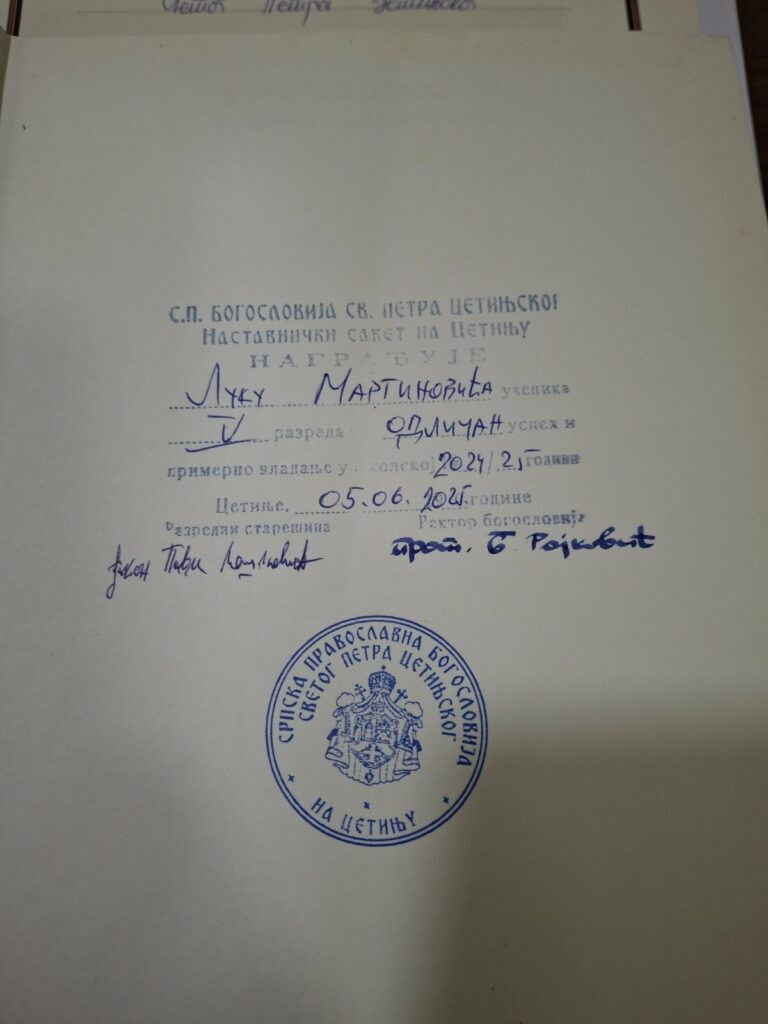 Петра
С.П. БОГОСЛОВИЈА СВ. ПЕТРА ЦЕТИЊСКОГ
НАСТАВНИЧКИ САВЕТ НА ЦЕТИЊУ
НАГРАЂУЈЕ
ЛУКУ МАРТИНОВИЋА ученика
V разреда ОДЛИЧАН успех и
примерно владање у школској 2024/25 године
Цетиње, 05.06. 2025. године
Разредни старешина Ректор богословије
ђакон прот. Б. Рајковић
СРПСКА ПРАВОСЛАВНА БОГОСЛОВИЈА
СВЕТОГ ПЕТРА ЦЕТИЊСКОГ
НА ЦЕТИЊУ